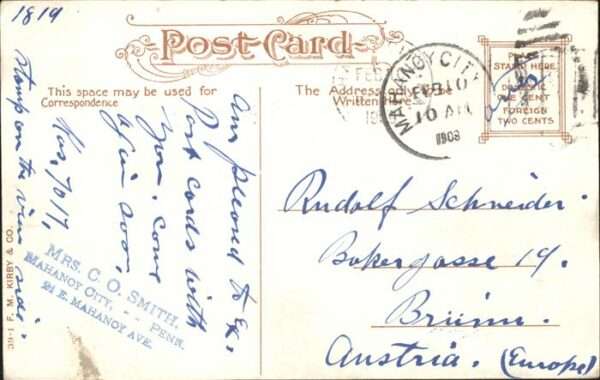 1819
Post Card
This space may be used for
Correspondence
The Address only
Written Here
PLACE
STAMP HERE
DOMESTIC
ONE CENT
FOREIGN
TWO CENTS
MAHANOY CITY
FEB 10
10 AM
1909
Am pleased to Ex.
Post cards with
you. come
again soon,
Kos, 7017,
Stamp on the view side.
MRS. C. O. SMITH,
MAHANOY CITY, -- PENN.
21 E. MAHANOY AVE.
39-1 F. M. KIRBY & CO.
Rudolf Schneider.
Bakergasse 19.
Brünn.
Austria. (Europe)